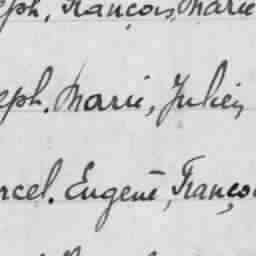 eph, François, Marie
eph, Marie, Julien
rcel, Eugène, Franço